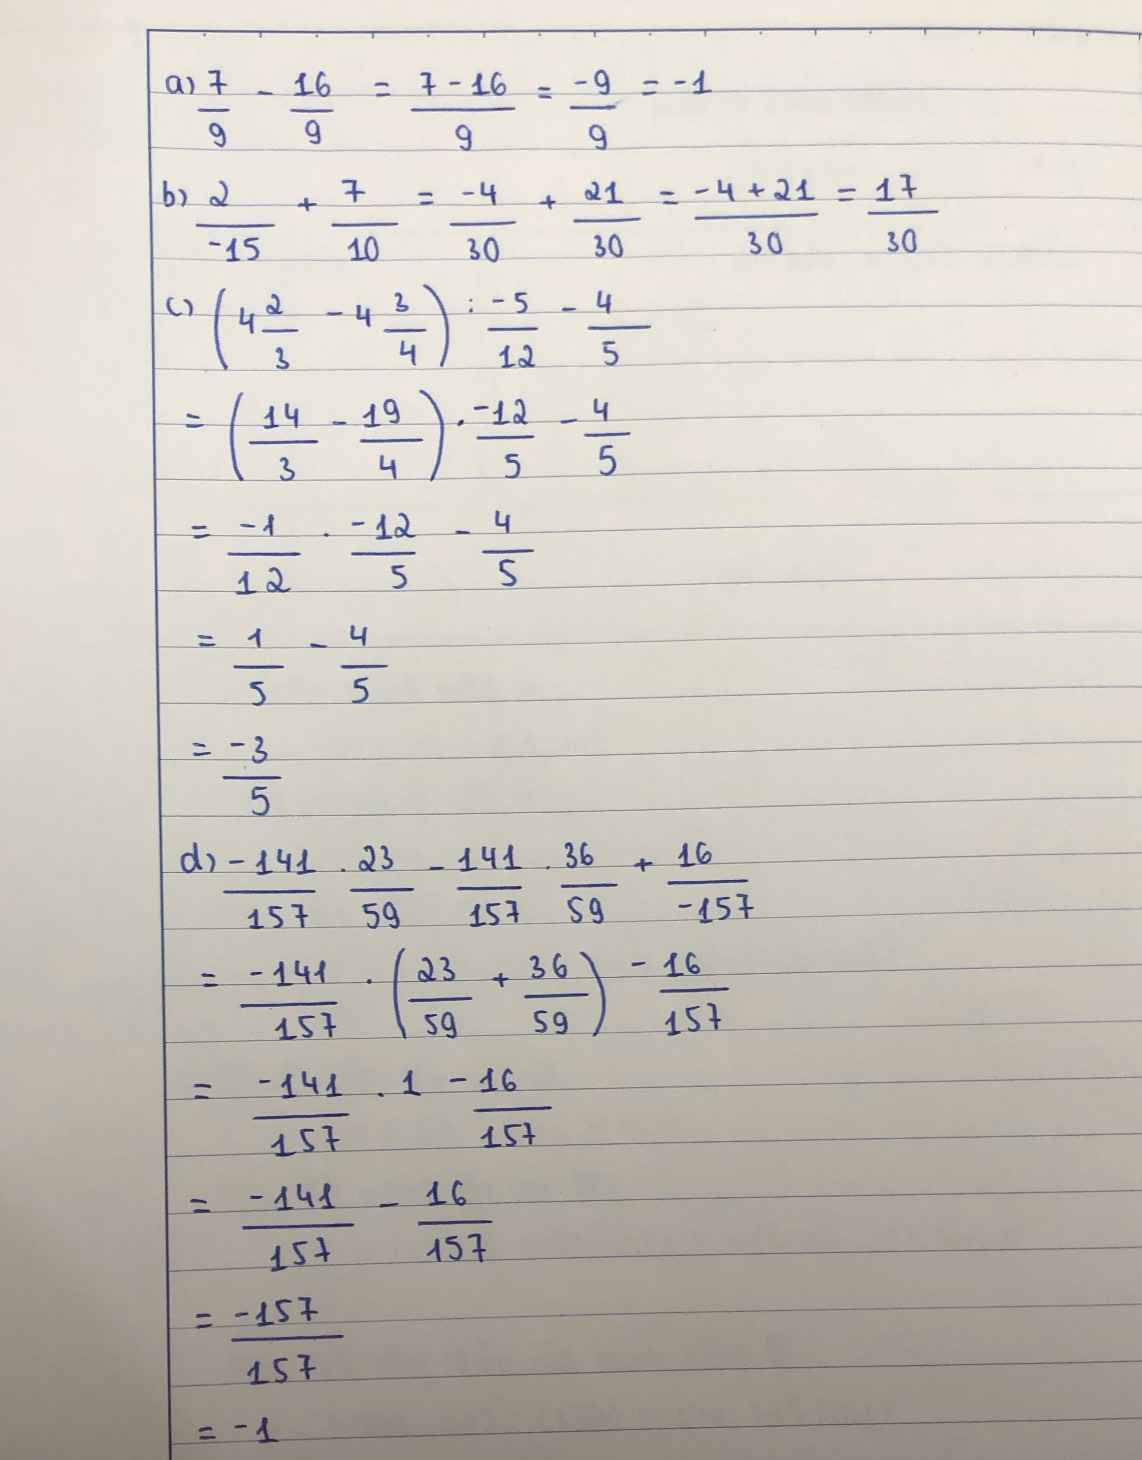 a) 7/9 - 16/9 = (7 - 16)/9 = -9/9 = -1
b) 2/-15 + 7/10 = -4/30 + 21/30 = (-4 + 21)/30 = 17/30
c) (4 2/3 - 4 3/4) : -5/12 - 4/5
= (14/3 - 19/4) . -12/5 - 4/5
= -1/12 . -12/5 - 4/5
= 1/5 - 4/5
= -3/5
d) -141/157 . 23/59 - 141/157 . 36/59 + 16/-157
= -141/157 . (23/59 + 36/59) - 16/157
= -141/157 . 1 - 16/157
= -141/157 - 16/157
= -157/157
= -1